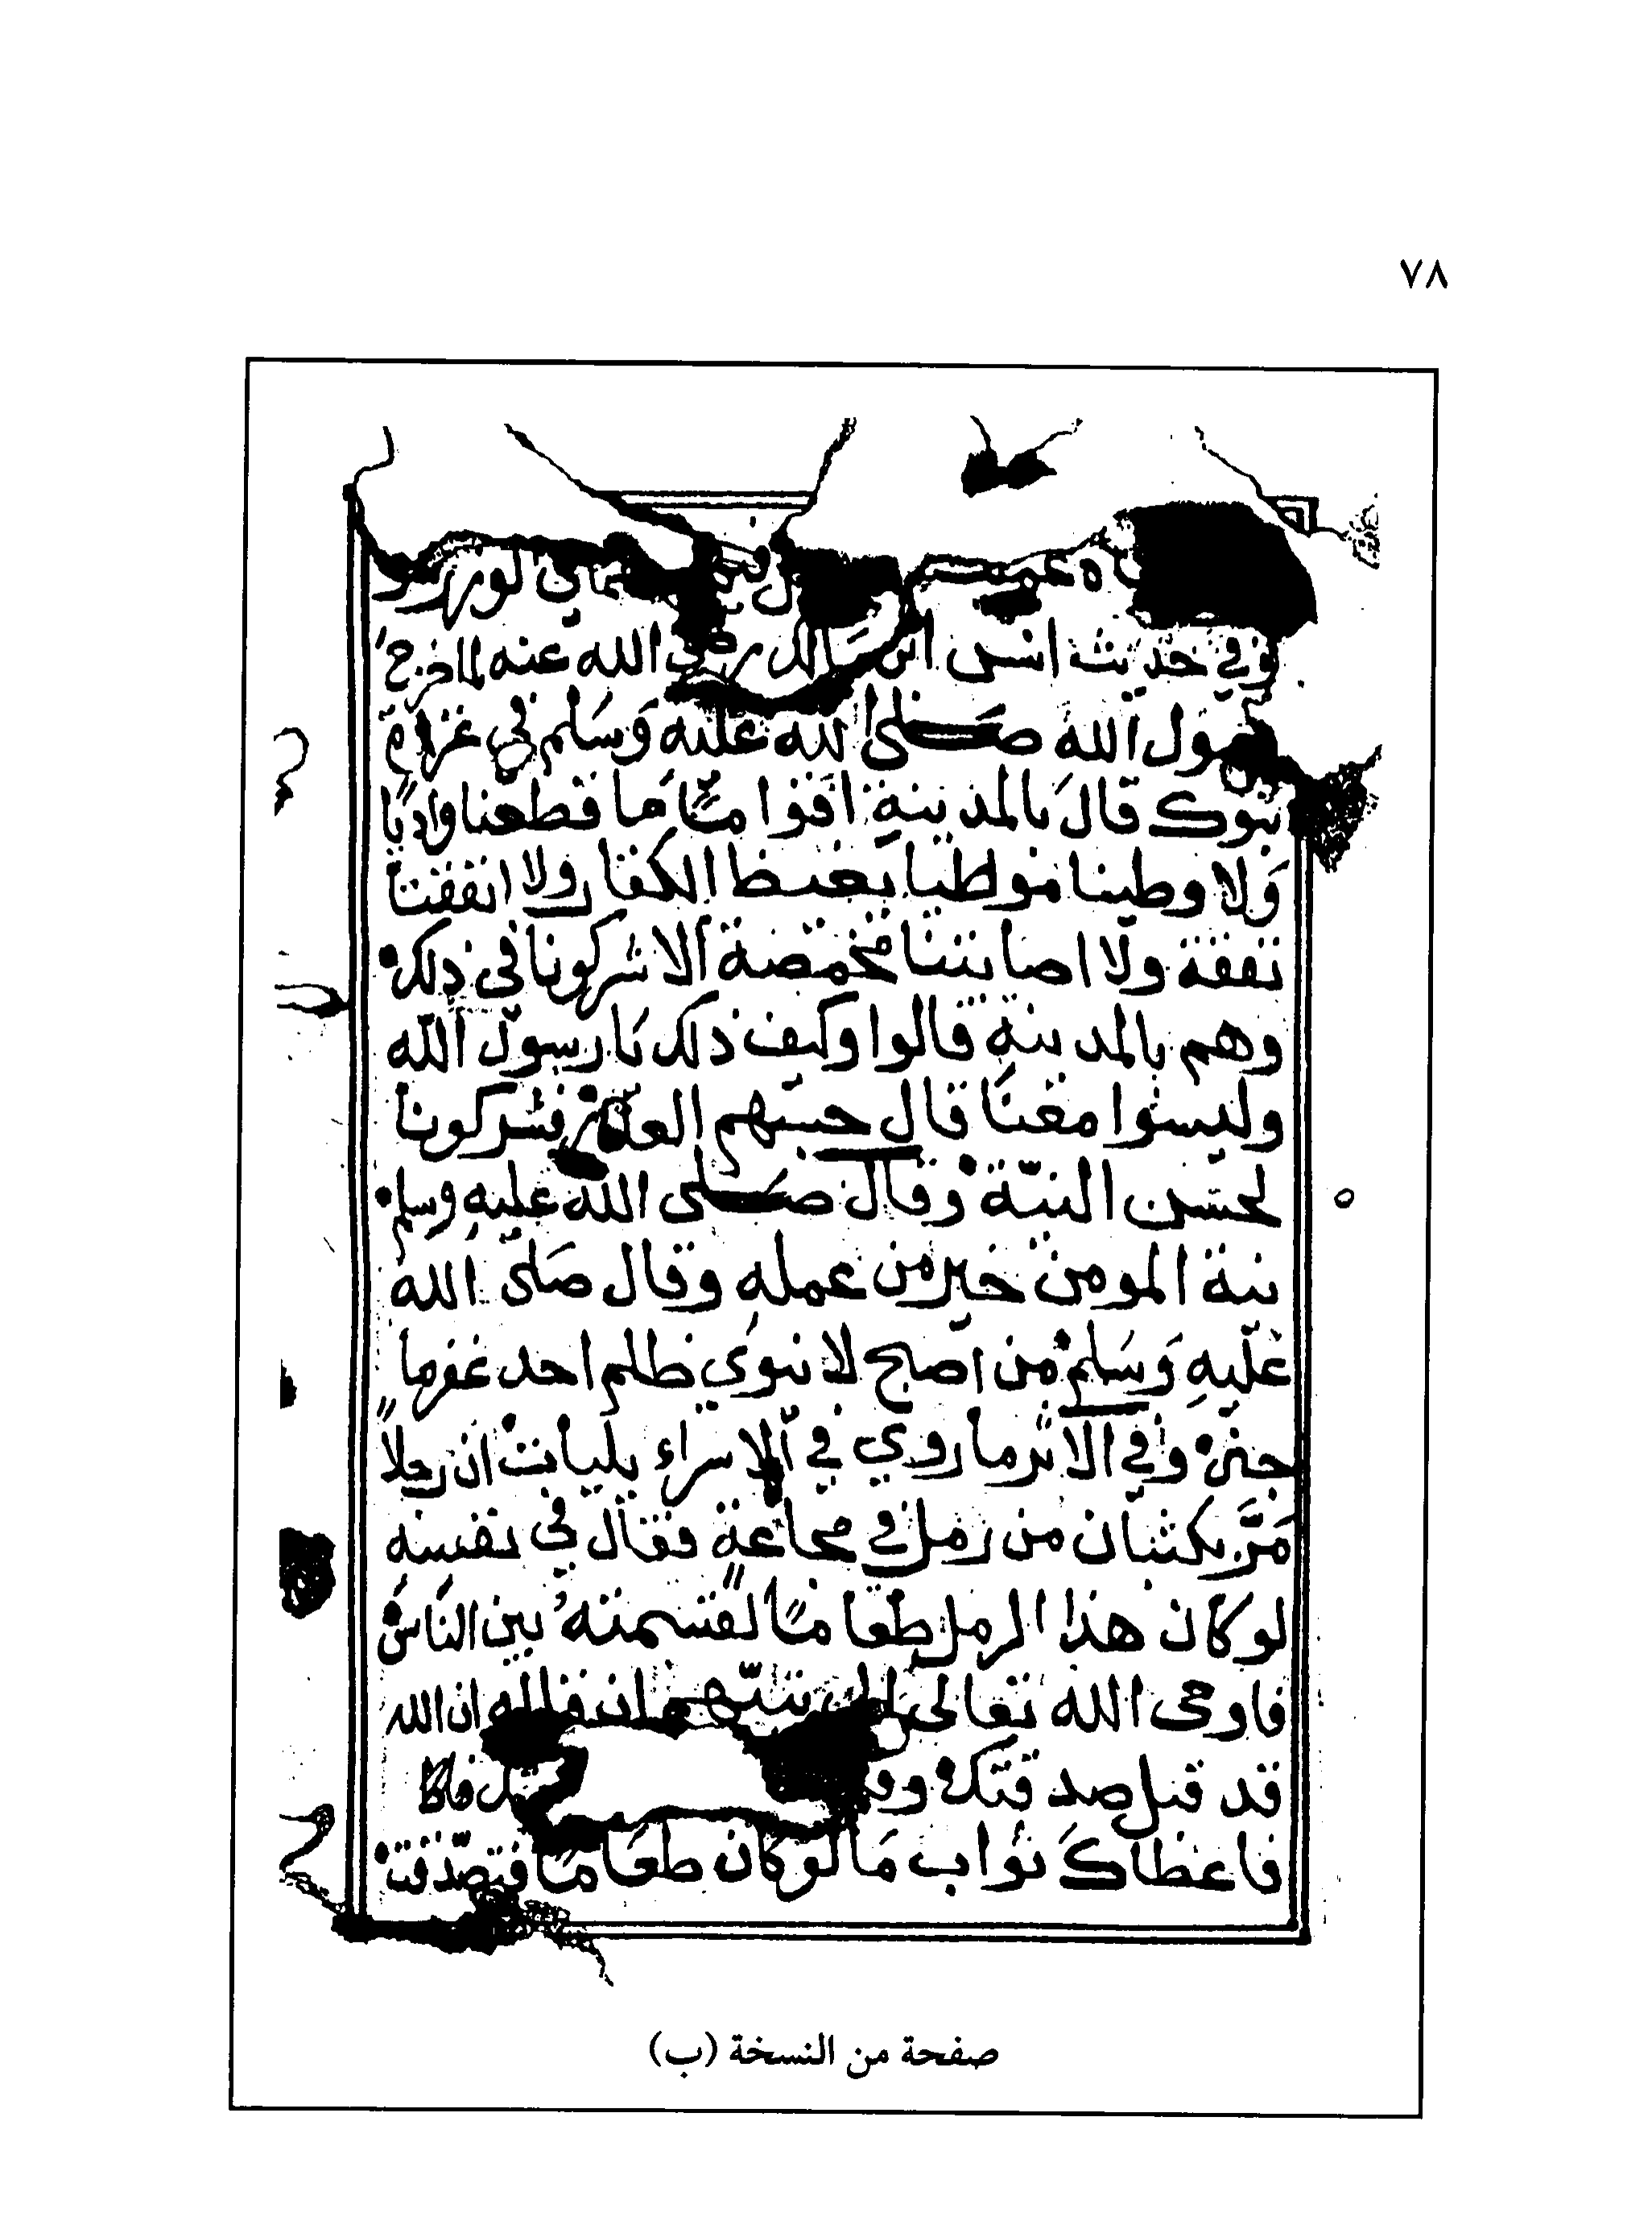 ٧٨
وفي حديث انس ابن مالك رضي الله عنه لما خرج
رسول الله صلى الله عليه وسلم في غزاة
تبوك قال بالمدينة اقواما ما قطعنا واديا
ولا وطينا موطيا يغيظ الكفار ولا انفقنا
نفقة ولا اصابتنا مخمصة الا شركونا في ذلك
وهم بالمدينة قالوا وكيف ذلك يا رسول الله
وليسوا معنا قال حبسهم العذر فشركونا
لحسن النية وقال صلى الله عليه وسلم
نية المومن خير من عمله وقال صلى الله
عليه وسلم من اصبح لا ينوي ظلم احد غفر ما
جنى وفي الاثر ما روي في الاسراء يليات ان رجلا
مر بكثبان من رمل في مجاعة فقال في نفسه
لو كان هذا الرمل طعاما لقسمته بين الناس
فاوحى الله تعالى الى نبيهم ان قل له ان الله
قد قبل صدقتك
فاعطاك ثواب ما لو كان طعاما فتصدقت
صفحة من النسخة (ب)